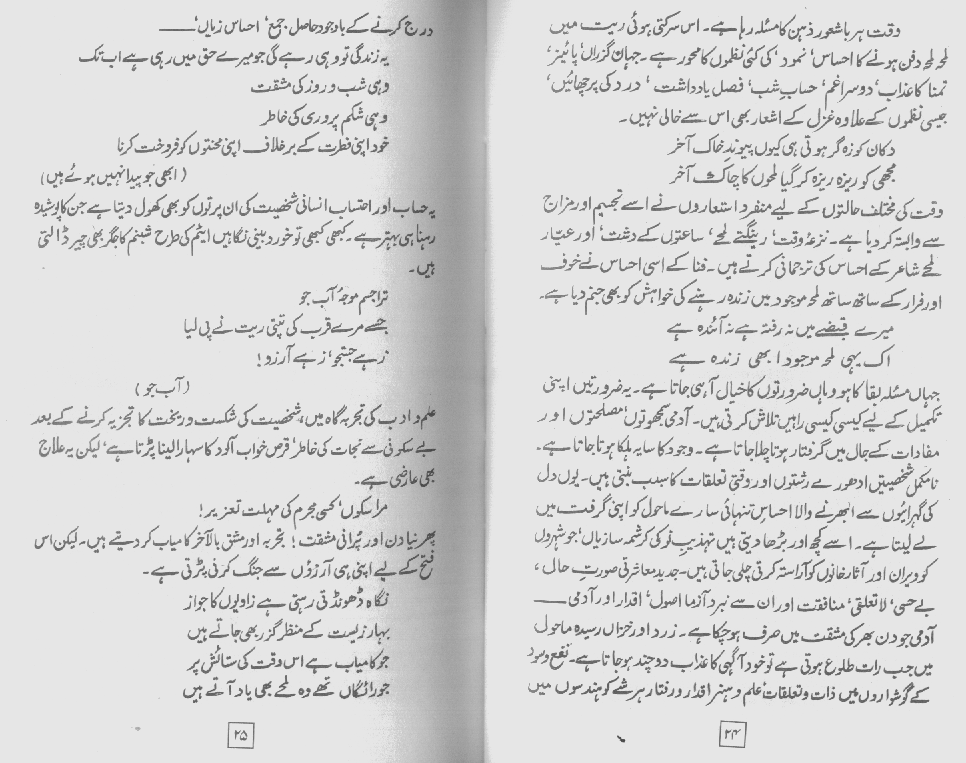 وقت ہر باشعور ذہن کا مسئلہ رہا ہے۔ اس سرکتی ہوئی ریت میں
لمحہ لمحہ دفن ہونے کا احساس ’نمود‘ کی کئی نظموں کا محور ہے۔ جہانِ گزراں‘ پائیز‘
تمنا کا عذاب‘ دوسرا غم‘ حسابِ شب‘ فصلِ یادداشت‘ درد کی پرچھائیں‘
جیسی نظموں کے علاوہ غزل کے اشعار بھی اس سے خالی نہیں۔
دکان کوزہ گر ہوتی ہی کیوں پیوندِ خاک آخر
مجھی کو ریزہ ریزہ کر گیا لمحوں کا چاک آخر
وقت کی مختلف حالتوں کے لیے منفرد استعاروں نے اسے تجسیم اور مزاج
سے وابستہ کر دیا ہے۔ نزعۂ وقت‘ رینگتے لمحے‘ ساعتوں کے دشت‘ اور عیّار
لمحے شاعر کے احساس کی ترجمانی کرتے ہیں۔ فنا کے اسی احساس نے خوف
اور فرار کے ساتھ ساتھ لمحۂ موجود میں زندہ رہنے کی خواہش کو بھی جنم دیا ہے۔
میرے قبضے میں نہ رفتہ ہے نہ آئندہ ہے
اک یہی لمحہ موجود ابھی زندہ ہے
جہاں مسئلہ بقا کا ہو وہاں ضرورتوں کا خیال آ ہی جاتا ہے۔ یہ ضرورتیں اپنی
تکمیل کے لیے کیسی کیسی راہیں تلاش کرتی ہیں۔ آدمی سمجھوتوں‘ مصلحتوں اور
مفادات کے جال میں گرفتار ہوتا چلا جاتا ہے۔ وجود کا سایہ ہلکا ہوتا جاتا ہے۔
نامکمل شخصیتیں ادھورے رشتوں اور وقتی تعلقات کا سبب بنتی ہیں۔ یوں دل
کی گہرائیوں سے ابھرنے والا احساسِ تنہائی سارے ماحول کو اپنی گرفت میں
لے لیتا ہے۔ اسے کچھ اور بڑھا دیتی ہیں تہذیبِ نو کی کرشمہ سازیاں‘ جو شہروں
کو ویران اور آثار خانوں کو آراستہ کرتی چلی جاتی ہیں۔ جدید معاشرتی صورتِ حال،
بے حسی‘ لاتعلقی‘ منافقت اور ان سے نبرد آزما اصول‘ اقدار اور آدمی ——
آدمی جو دن بھر کی مشقت میں صرف ہو چکا ہے۔ زرد اور خزاں رسیدہ ماحول
میں جب رات طلوع ہوتی ہے تو خود آگہی کا عذاب دوچند ہو جاتا ہے۔ نفع و سود
کے گوشواروں میں ذات و تعلقات‘ علم و ہنر‘ اقدار و رفتار ہر شے کو ہندسوں میں
۲۴
درج کرنے کے باوجود حاصل جمع‘ احساسِ زیاں‘——
یہ زندگی تو وہی رہے گی جو میرے حق میں رہی ہے اب تک
وہی شب و روز کی مشقت
وہی شکم پروری کی خاطر
خود اپنی فطرت کے برخلاف اپنی محنتوں کو فروخت کرنا
(ابھی جو پیدا نہیں ہوئے ہیں)
یہ حساب اور احتساب انسانی شخصیت کی ان پرتوں کو بھی کھول دیتا ہے جن کا پوشیدہ
رہنا ہی بہتر ہے۔ کبھی کبھی تو خورد بینی نگاہیں ایٹم کی طرح شبنم کا جگر بھی چیر ڈالتی
ہیں۔
ترا جسم موجۂ آب جو
جسے مرے قرب کی تپتی ریت نے پی لیا
زہے جستجو‘ زہے آرزو!
(آب جو)
علم و ادب کی تجربہ گاہ میں، شخصیت کی شکست و ریخت کا تجزیہ کرنے کے بعد
بے سکونی سے نجات کی خاطر‘ قرص خواب آلود کا سہارا لینا پڑتا ہے‘ لیکن یہ علاج
بھی عارضی ہے۔
مرا سکوں‘ کسی مجرم کی مہلت تعزیر!
پھر نیا دن اور پُرانی مشقت! تجربہ اور مشق بالآخر کامیاب کر دیتے ہیں۔ لیکن اس
فتح کے لیے اپنی ہی آرزؤں سے جنگ کرنی پڑتی ہے۔
نگاہ ڈھونڈتی رہتی ہے زاویوں کا جواز
بہارِ زیست کے منظر گزر بھی جاتے ہیں
جو کامیاب ہے اس وقت کی ستائش پر
جو رائگاں تھے وہ لمحے بھی یاد آتے ہیں
۲۵